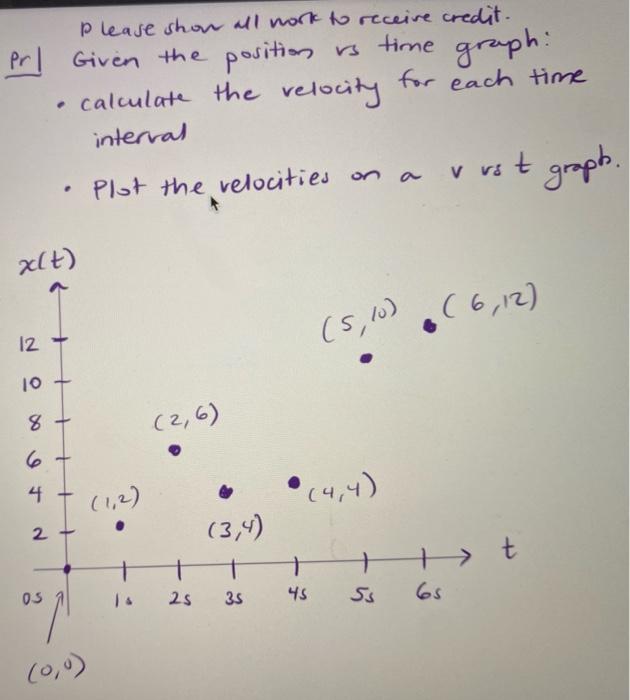 Please show all work to receive credit.
Pr1 Given the position vs time graph:
• calculate the velocity for each time
interval
• Plot the velocities on a v vs t graph.
x(t)
(5,10) (6,12)
12
10
8 (2,6)
6
4 (1,2) (4,4)
2 (3,4)
t
0s 1s 2s 3s 4s 5s 6s
(0,0)